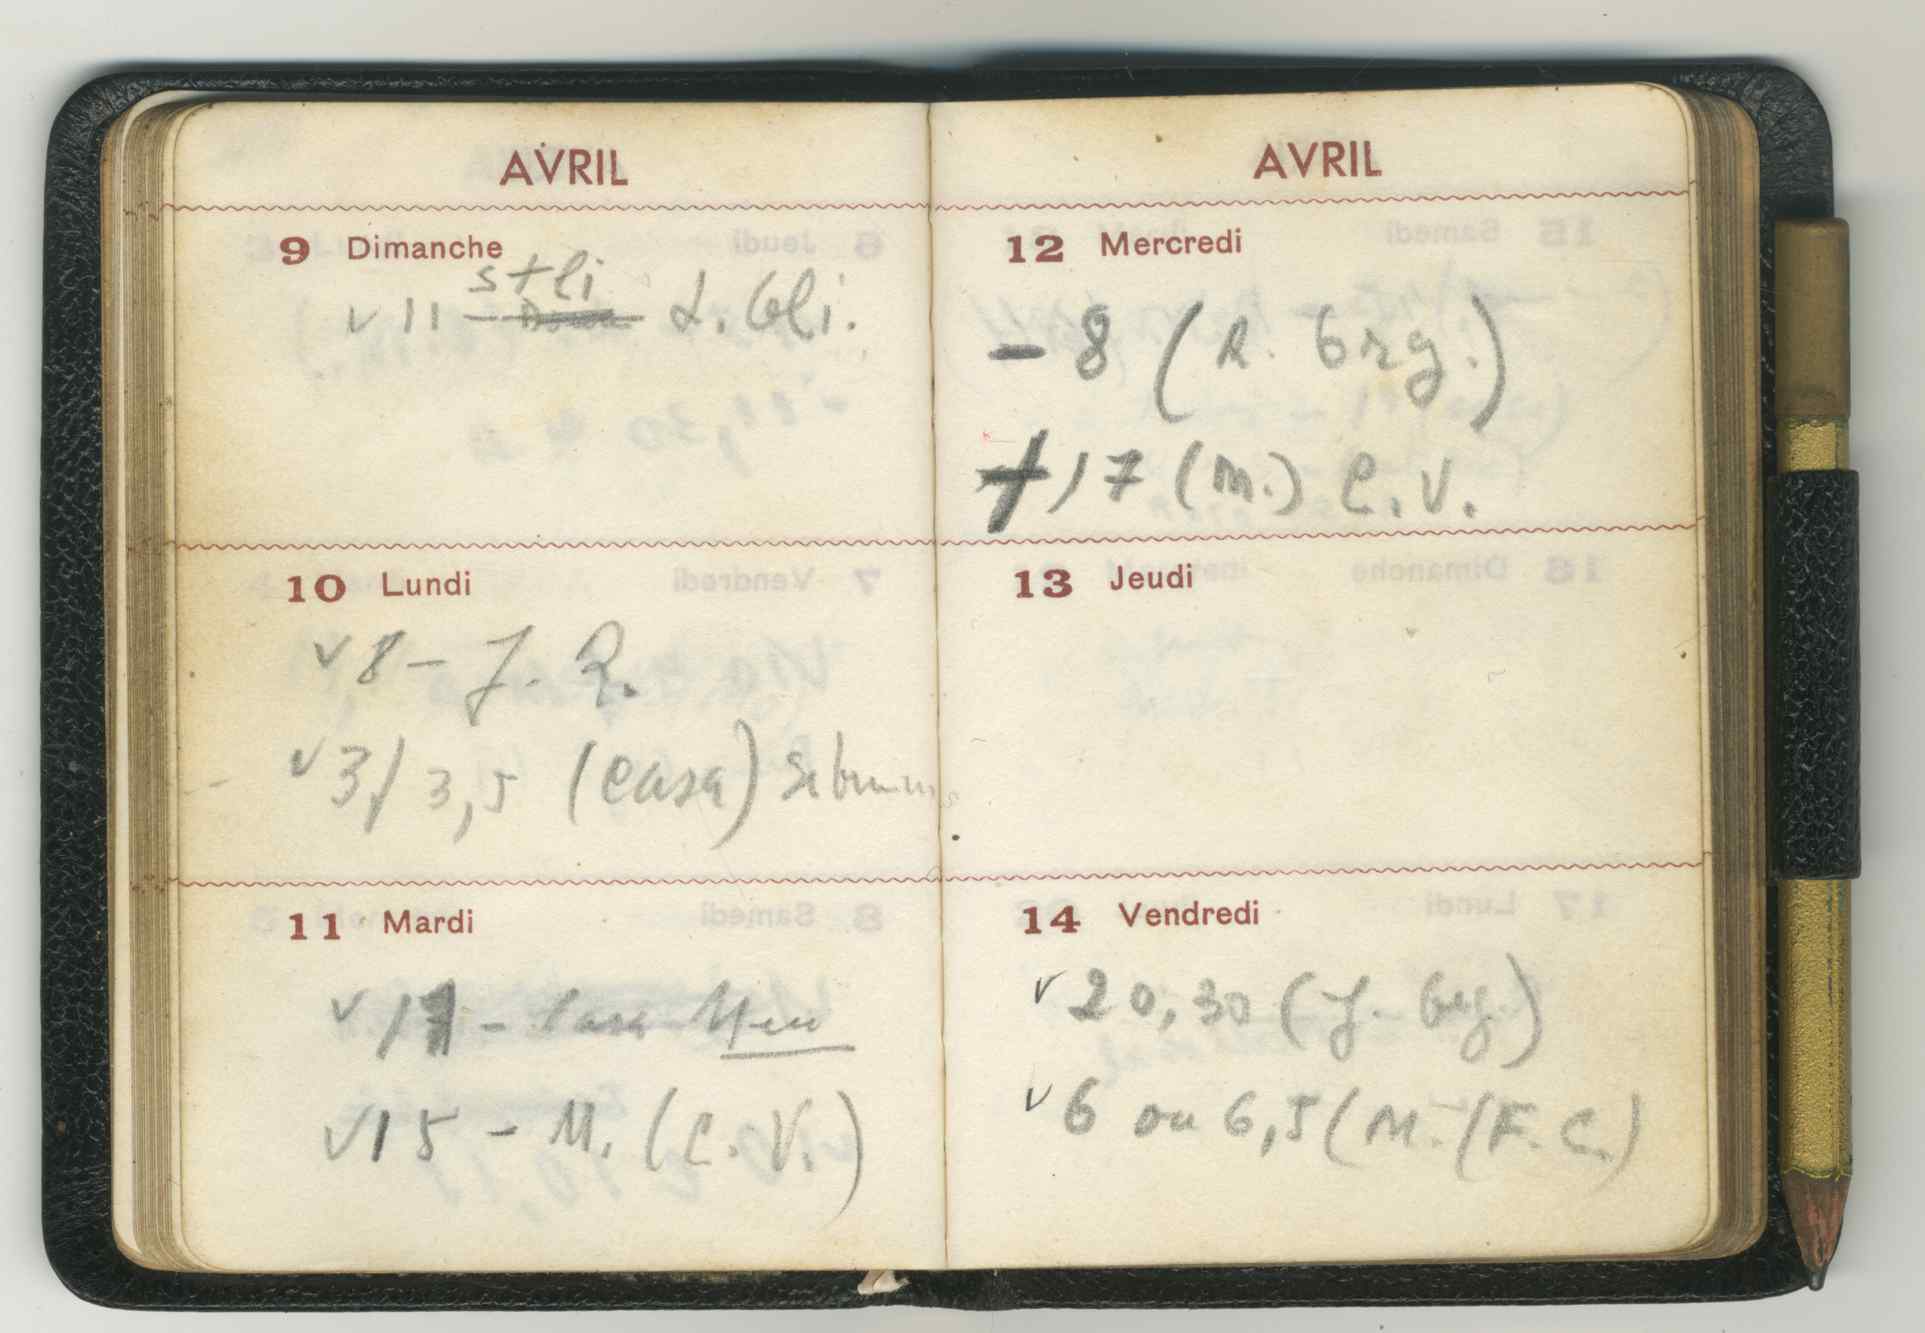 AVRIL
9 Dimanche
stli
v 11 — L. Gli.
10 Lundi
v 8 – J. R.
v 3/ 3,5 (casa)
11 Mardi
v 17 – Casa
v 15 – M. (C.V.)
AVRIL
12 Mercredi
– 8 (R. Grg.)
17 (M.) C.V.
13 Jeudi
14 Vendredi
v 20,30 (J. Grg.)
v 6 ou 6,5 (M. (F.C.)